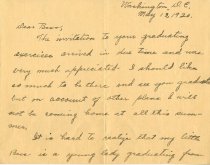 Washington, D.C.
May 13, 1920.
Dear Bess:
The invitation to your graduating
exercises arrived in due time and was
very much appreciated. I should like
so much to be there and see you graduate
but on account of other plans I will
not be coming home at all this sum-
mer.
It is hard to realize that my little
is a young lady graduating from